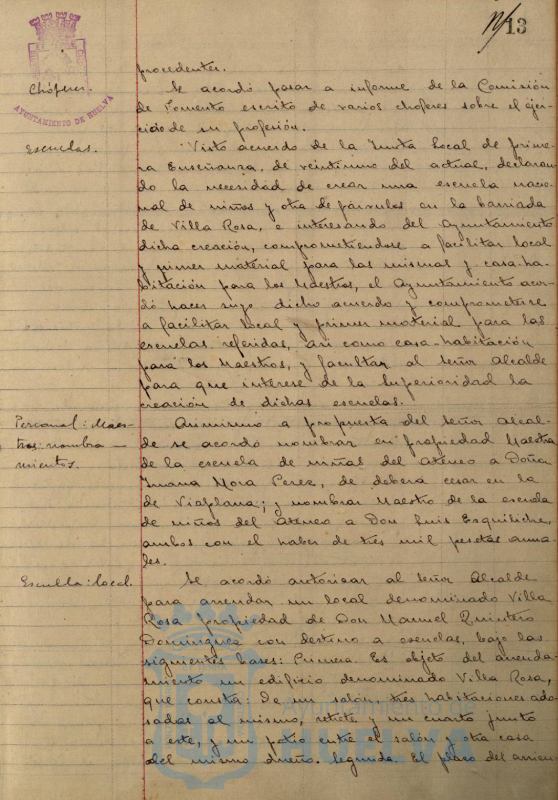 N/13
AYUNTAMIENTO DE HUELVA
procedentes.
Chóferes.
Se acordó pasar a informe de la Comisión
de Fomento escrito de varios choferes sobre el ejer-
cicio de su profesión.
Escuelas.
Visto acuerdo de la Junta local de prime-
ra Enseñanza, de veintiuno del actual, declaran-
do la necesidad de crear una escuela nacio-
nal de niños y otra de párvulos en la barriada
de Villa Rosa, e interesando del Ayuntamiento
dicha creación, comprometiendose a facilitar local
y primer material para las mismas y casa-ha-
bitación para los Maestros, el Ayuntamiento acor-
dó hacer suyo dicho acuerdo y comprometerse
a facilitar local y primer material para las
escuelas referidas, asi como casa-habitación
para los Maestros, y facultar al Señor Alcalde
para que interese de la Superioridad la
creación de dichas escuelas.
Personal: Maes-
tros: nombra-
mientos.
Asimismo a propuesta del Señor Alcal-
de se acordó nombrar en propiedad Maestra
de la escuela de niñas del Ateneo a Doña
Juana Mora Perez, de deberá cesar en la
de Viaplana; y nombrar Maestro de la escuela
de niños del Ateneo a Don Luis Esquiliche,
ambos con el haber de tres mil pesetas anua-
les.
Escuela: local.
Se acordó autorizar al Señor Alcalde
para arrendar un local denominado Villa
Rosa propiedad de Don Manuel Quintero
Dominguez con destino a escuelas, bajo las
siguientes bases: Primera. Es objeto del arrenda-
miento un edificio denominado Villa Rosa,
que consta: De un salón, tres habitaciones ado-
sadas al mismo, retrete y un cuarto junto
a este, y un patio entre el salón y otra casa
del mismo dueño. Segunda. El plazo del arrien-
AYUNTAMIENTO DE
HUELVA